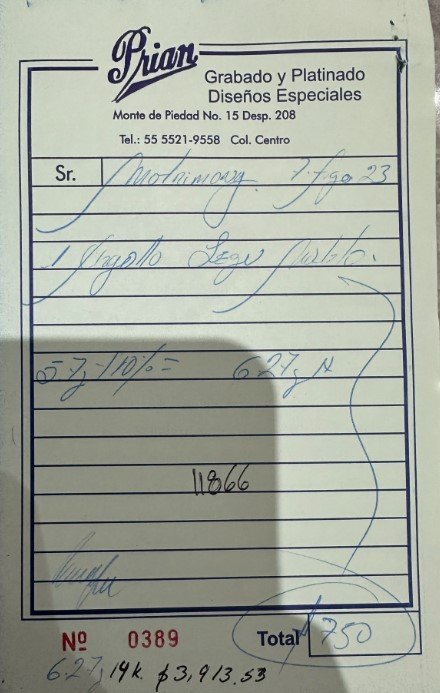 Prian
Grabado y Platinado
Diseños Especiales
Monte de Piedad No. 15 Desp. 208
Tel.: 55 5521-9558 Col. Centro
Sr. 23
1
5.7g + 10% = 6.27g
11866
Nº 0389 Total $750
6.27g 14k. $3,913.53